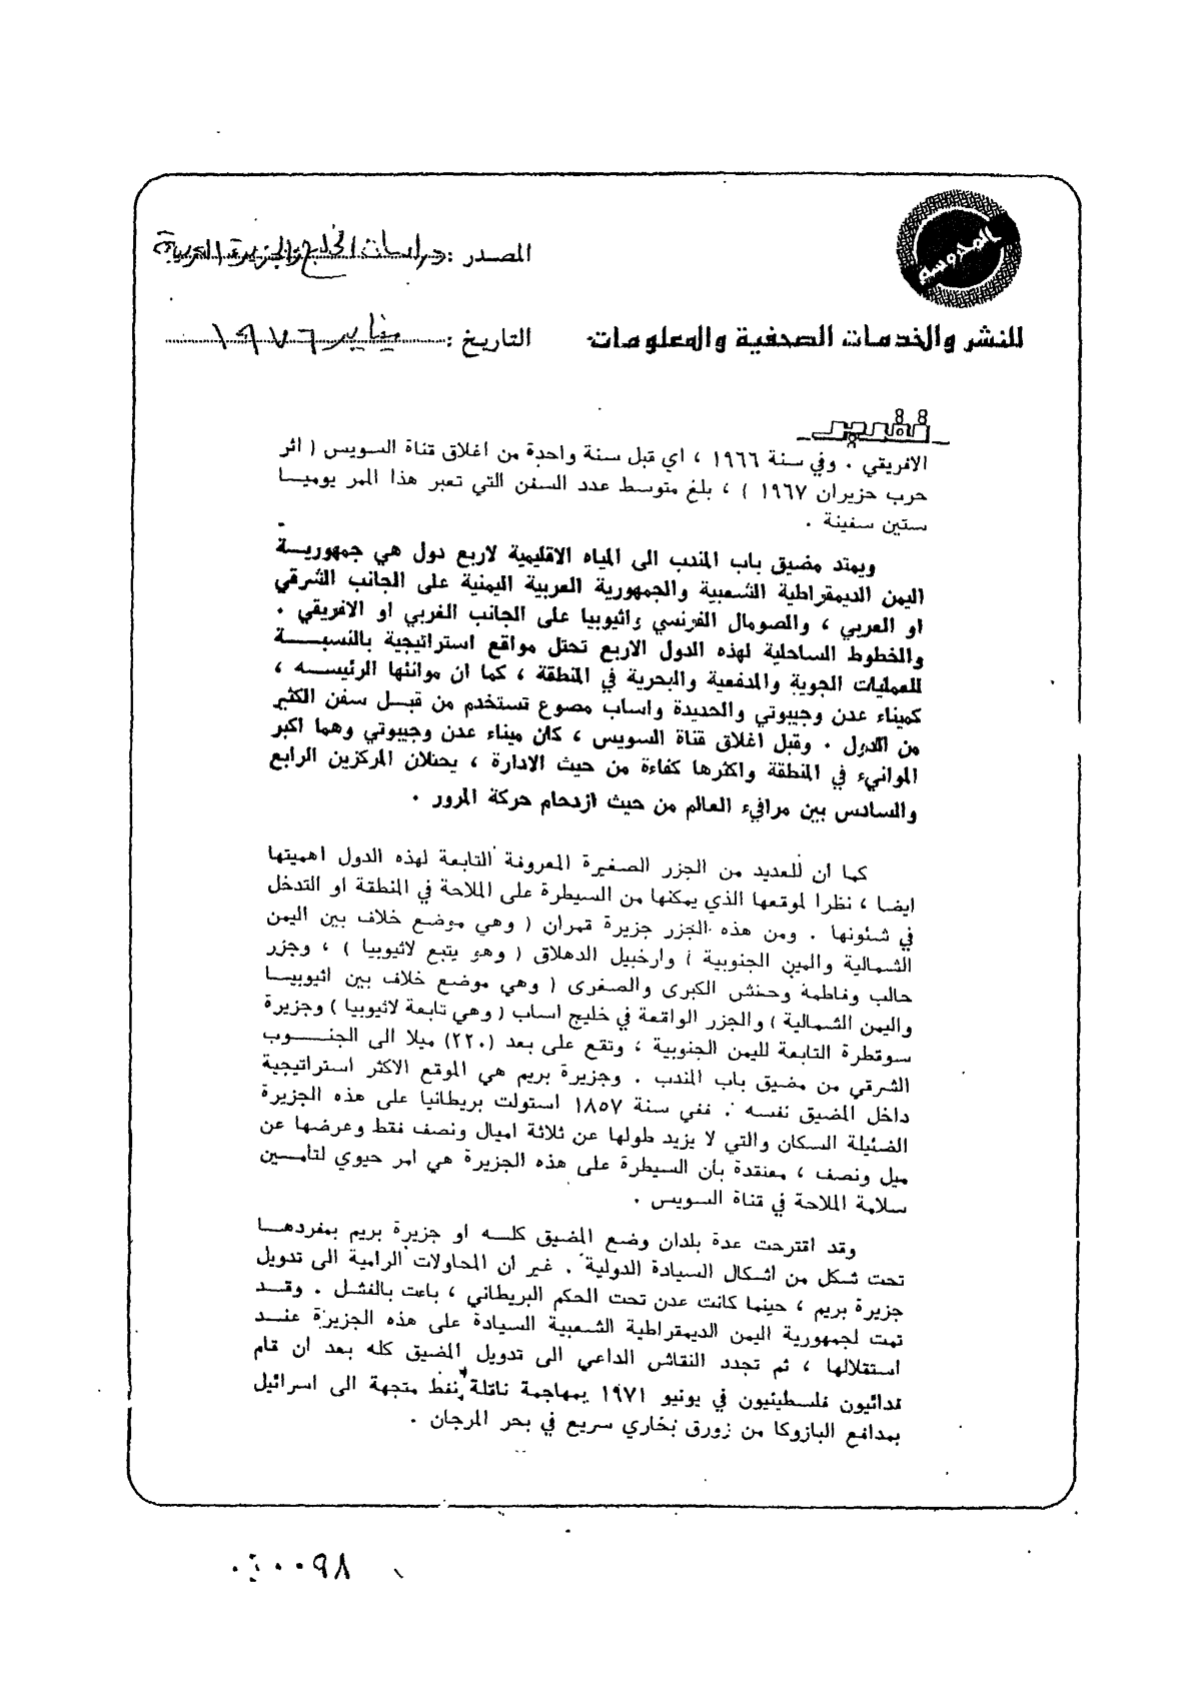 المدوسه
للنشر والخدمات الصحفية والمعلومات
المصدر : دراسات الخليج والجزيرة العربية
التاريخ : يناير ١٩٧٦
تقرير
الافريقي . وفي سنة ١٩٦٦ ، اي قبل سنة واحدة من اغلاق قناة السويس ( اثر
حرب حزيران ١٩٦٧ ) ، بلغ متوسط عدد السفن التي تعبر هذا الممر يوميا
ستين سفينة .
ويمتد مضيق باب المندب الى المياه الاقليمية لاربع دول هي جمهورية
اليمن الديمقراطية الشعبية والجمهورية العربية اليمنية على الجانب الشرقي
او العربي ، والصومال الفرنسي واثيوبيا على الجانب الغربي او الافريقي .
والخطوط الساحلية لهذه الدول الاربع تحتل مواقع استراتيجية بالنسبة
للعمليات الجوية والمدفعية والبحرية في المنطقة ، كما ان موانئها الرئيسه ،
كميناء عدن وجيبوتي والحديدة واساب مصوع تستخدم من قبل سفن الكثير
من الدول . وقبل اغلاق قناة السويس ، كان ميناء عدن وجيبوتي وهما اكبر
الموانيء في المنطقة واكثرها كفاءة من حيث الادارة ، يحتلان المركزين الرابع
والسادس بين مرافيء العالم من حيث ازدحام حركة المرور .
كما ان للعديد من الجزر الصغيرة المعروفة التابعة لهذه الدول اهميتها
ايضا ، نظرا لموقعها الذي يمكنها من السيطرة على الملاحة في المنطقة او التدخل
في شئونها . ومن هذه الجزر جزيرة قمران ( وهي موضع خلاف بين اليمن
الشمالية والمين الجنوبية ) وارخبيل الدهلاق ( وهو يتبع لاثيوبيا ) ، وجزر
حالب وفاطمة وحنش الكبرى والصغرى ( وهي موضع خلاف بين اثيوبيا
واليمن الشمالية ) والجزر الواقعة في خليج اساب ( وهي تابعة لاثيوبيا ) وجزيرة
سوقطرة التابعة لليمن الجنوبية ، وتقع على بعد (٢٢٠) ميلا الى الجنوب
الشرقي من مضيق باب المندب . وجزيرة بريم هي الموقع الاكثر استراتيجية
داخل المضيق نفسه . ففي سنة ١٨٥٧ استولت بريطانيا على هذه الجزيرة
الضئيلة السكان والتي لا يزيد طولها عن ثلاثة اميال ونصف فقط وعرضها عن
ميل ونصف ، معتقدة بان السيطرة على هذه الجزيرة هي امر حيوي لتأمين
سلامة الملاحة في قناة السويس .
وقد اقترحت عدة بلدان وضع المضيق كله او جزيرة بريم بمفردها
تحت شكل من اشكال السيادة الدولية . غير ان المحاولات الرامية الى تدويل
جزيرة بريم ، حينما كانت عدن تحت الحكم البريطاني ، باءت بالفشل . وقد
تمت لجمهورية اليمن الديمقراطية الشعبية السيادة على هذه الجزيرة عند
استقلالها ، ثم تجدد النقاش الداعي الى تدويل المضيق كله بعد ان قام
فدائيون فلسطينيون في يونيو ١٩٧١ بمهاجمة ناقلة نفط متجهة الى اسرائيل
بمدافع البازوكا من زورق بخاري سريع في بحر المرجان .